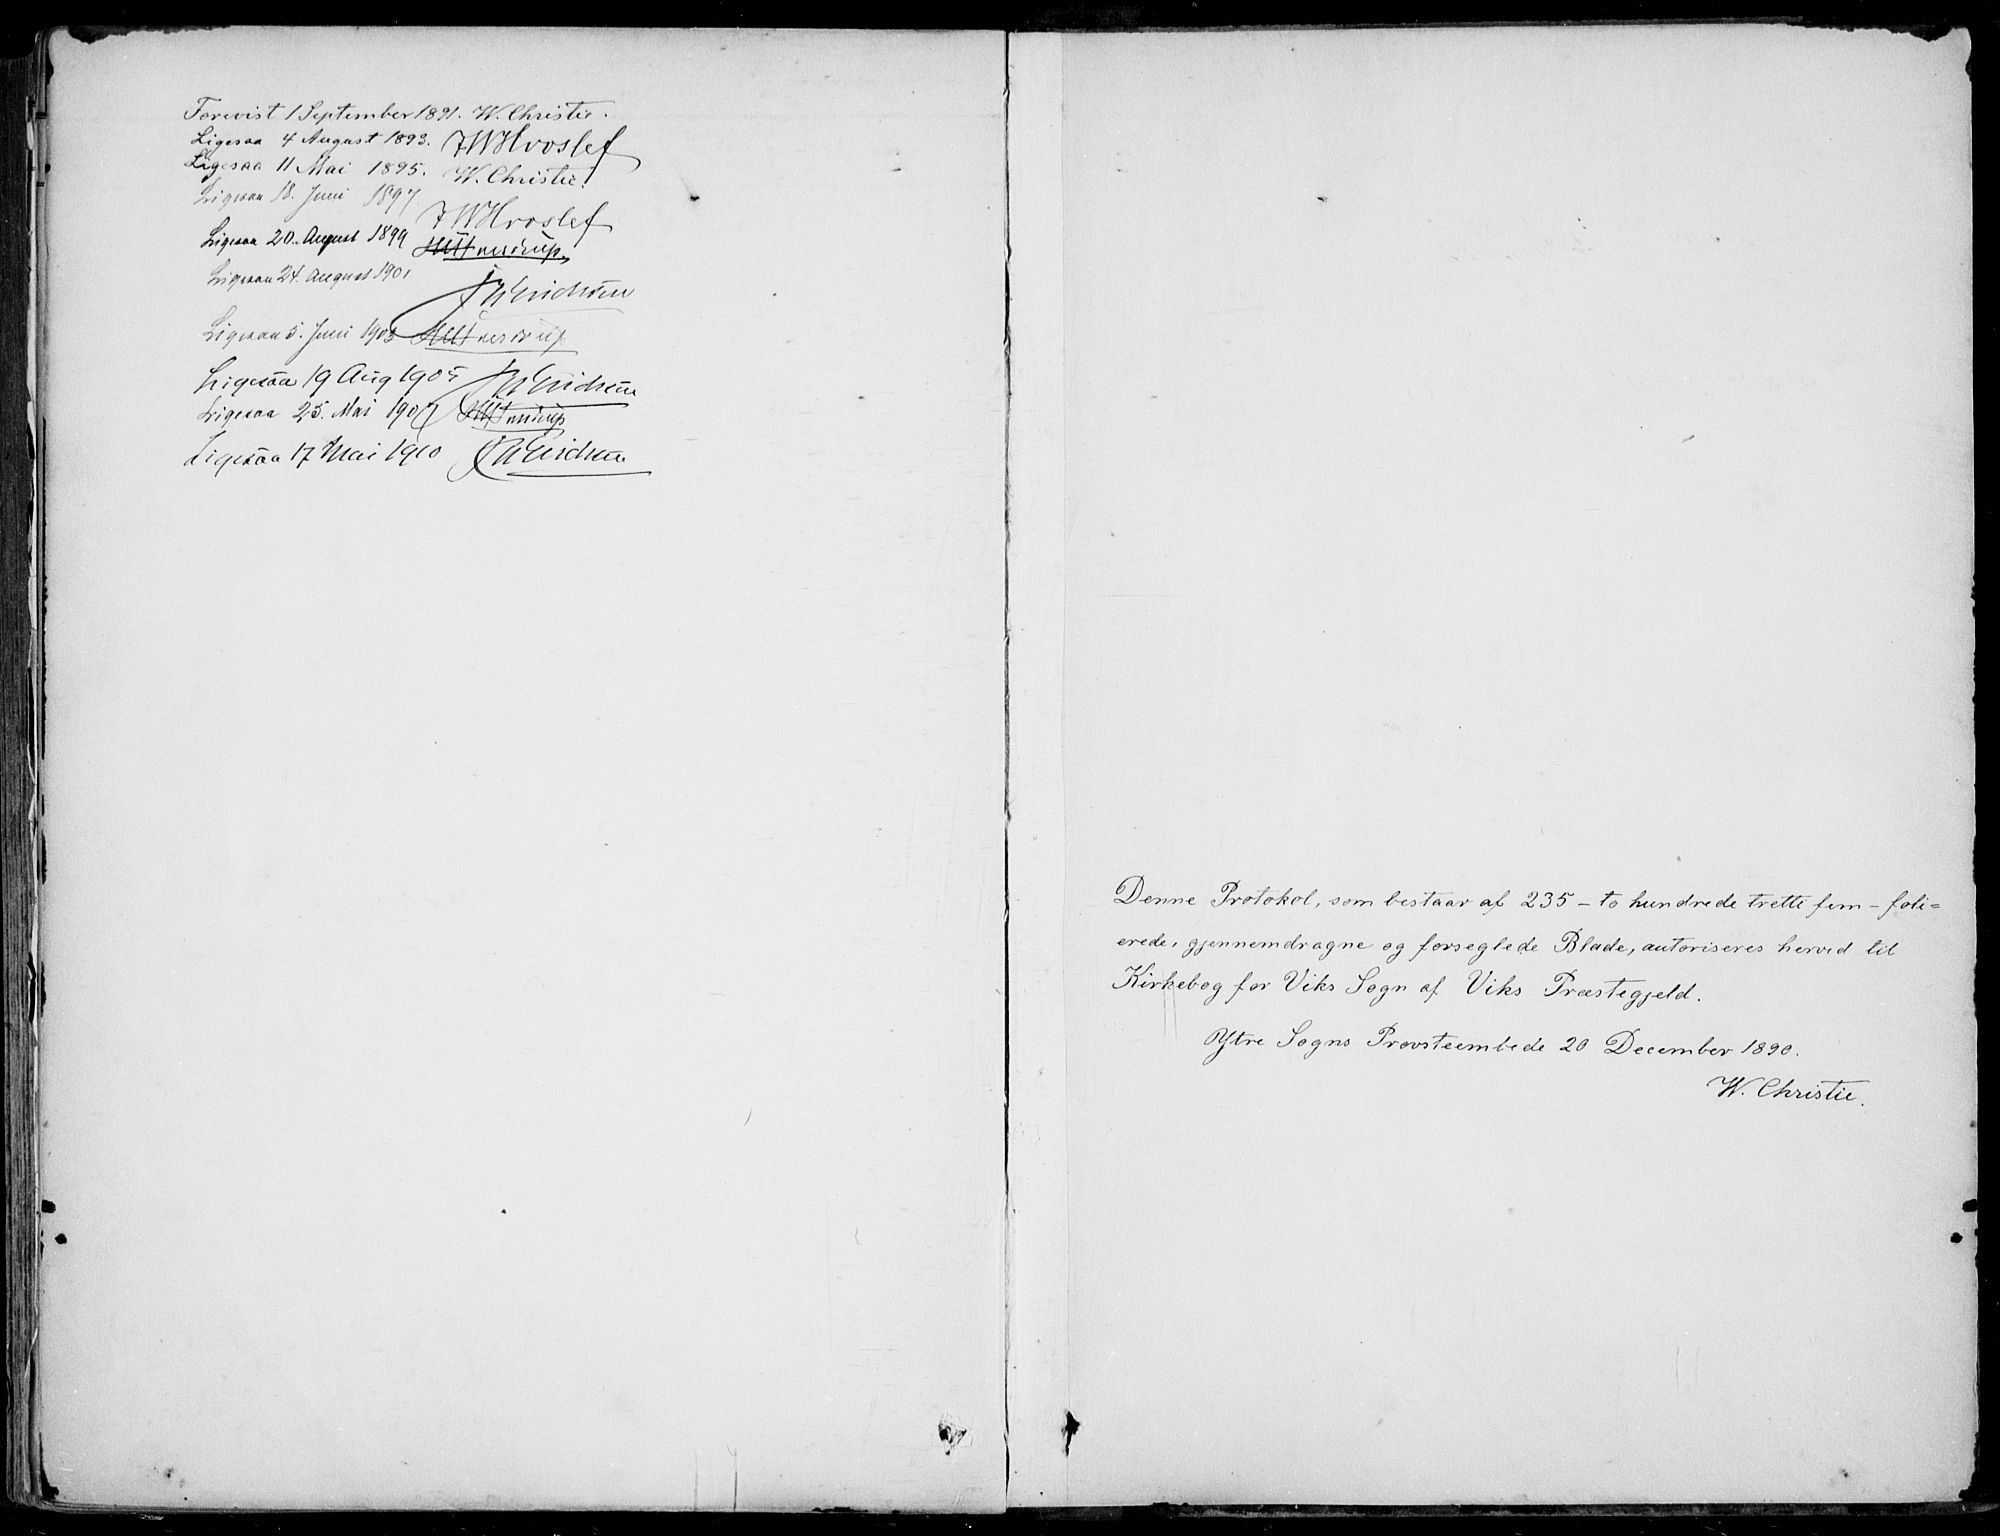 Forevist 1 September 1891. W. Christie.
Ligesaa 4 August 1893. JWHvoslef
Ligesaa 11 Mai 1895. W. Christie.
Ligesaa 18. Juni 1897. JWHvoslef
Ligesaa 20. August 1899
Ligesaa 24. August 1901
Ligesaa 5. Juni 1903
Ligesaa 19 Aug 1905
Ligesaa 25. Mai 1907
Ligesaa 17 Mai 1910
Denne Protokol, som bestaar af 235 - to hundrede trette fem - foli=
erede, gjennemdragne og forseglede Blade, autoriseres herved til
Kirkebog for Viks Sogn af Viks Præstegjeld.
Ytre Sogns Provsteembede 20 December 1890.
W. Christie.